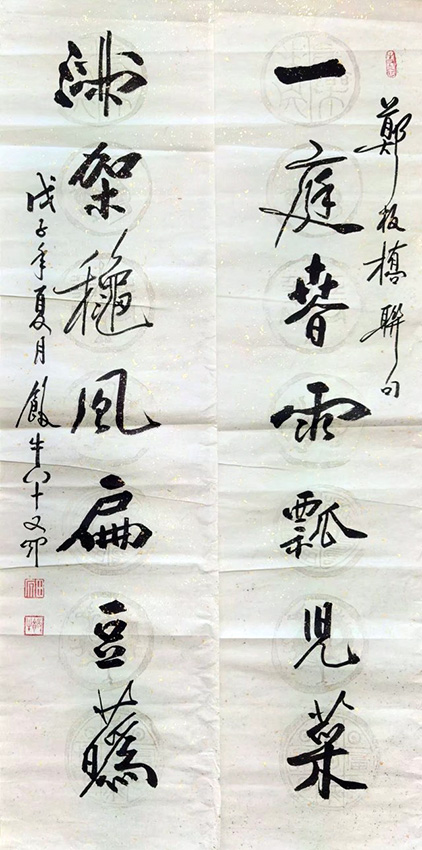 鄭板橋聯句
一庭春雨瓢兒菜
滿架穐風扁豆蘤
戊子年夏月飯牛八十又